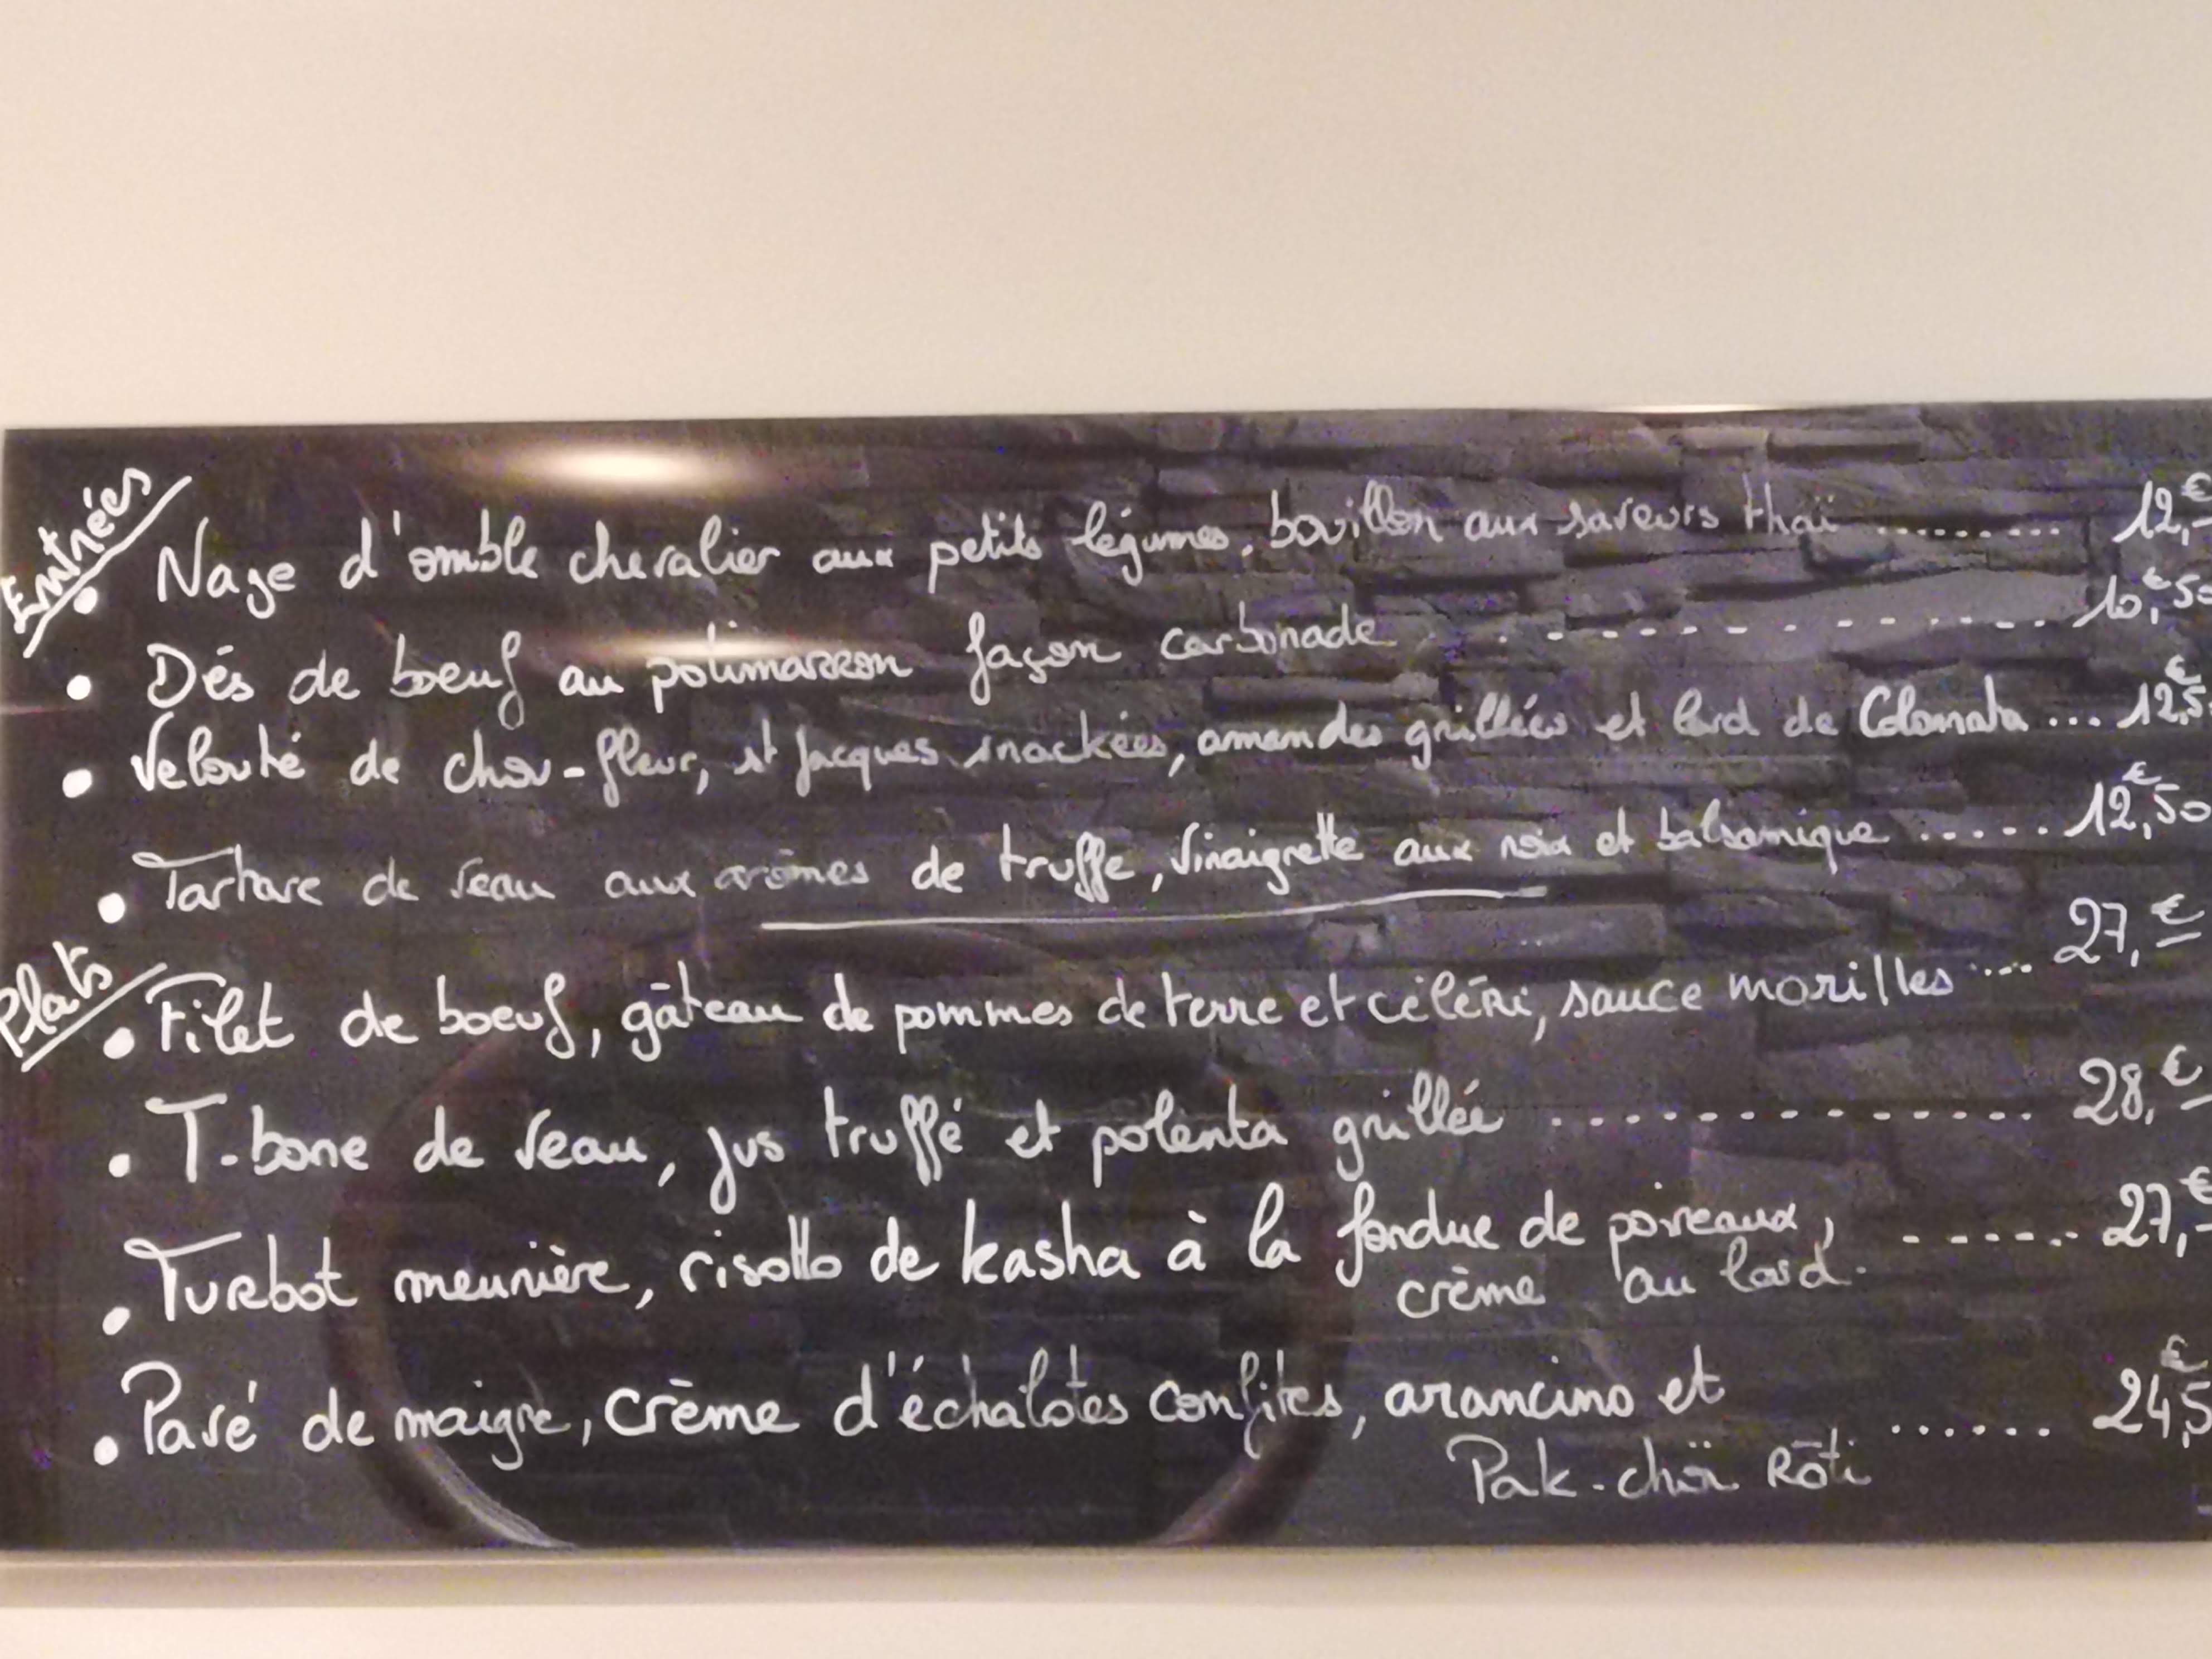 Entrées
• Nage d'omble chevalier aux petits légumes, bouillon aux saveurs thaï ......... 12,€
• Dés de boeuf au potimarron façon carbonade - - - - - - - - - - - - 10,€50
• Velouté de chou-fleur, st Jacques snackées, amandes grillées et lard de Colonnata ... 12,€5
• Tartare de veau aux arômes de truffe, vinaigrette aux noix et balsamique ...... 12,€50
Plats
• Filet de boeuf, gâteau de pommes de terre et céléri, sauce morilles .... 27,€
• T-bone de veau, jus truffé et polenta grillée .............. 28,€
• Turbot meunière, risotto de kasha à la fondue de poireaux, ------ 27,€
crème au lard.
• Pavé de maigre, crème d'échalotes confites, arancino et ...... 24,€5
Pak-choï Rôti